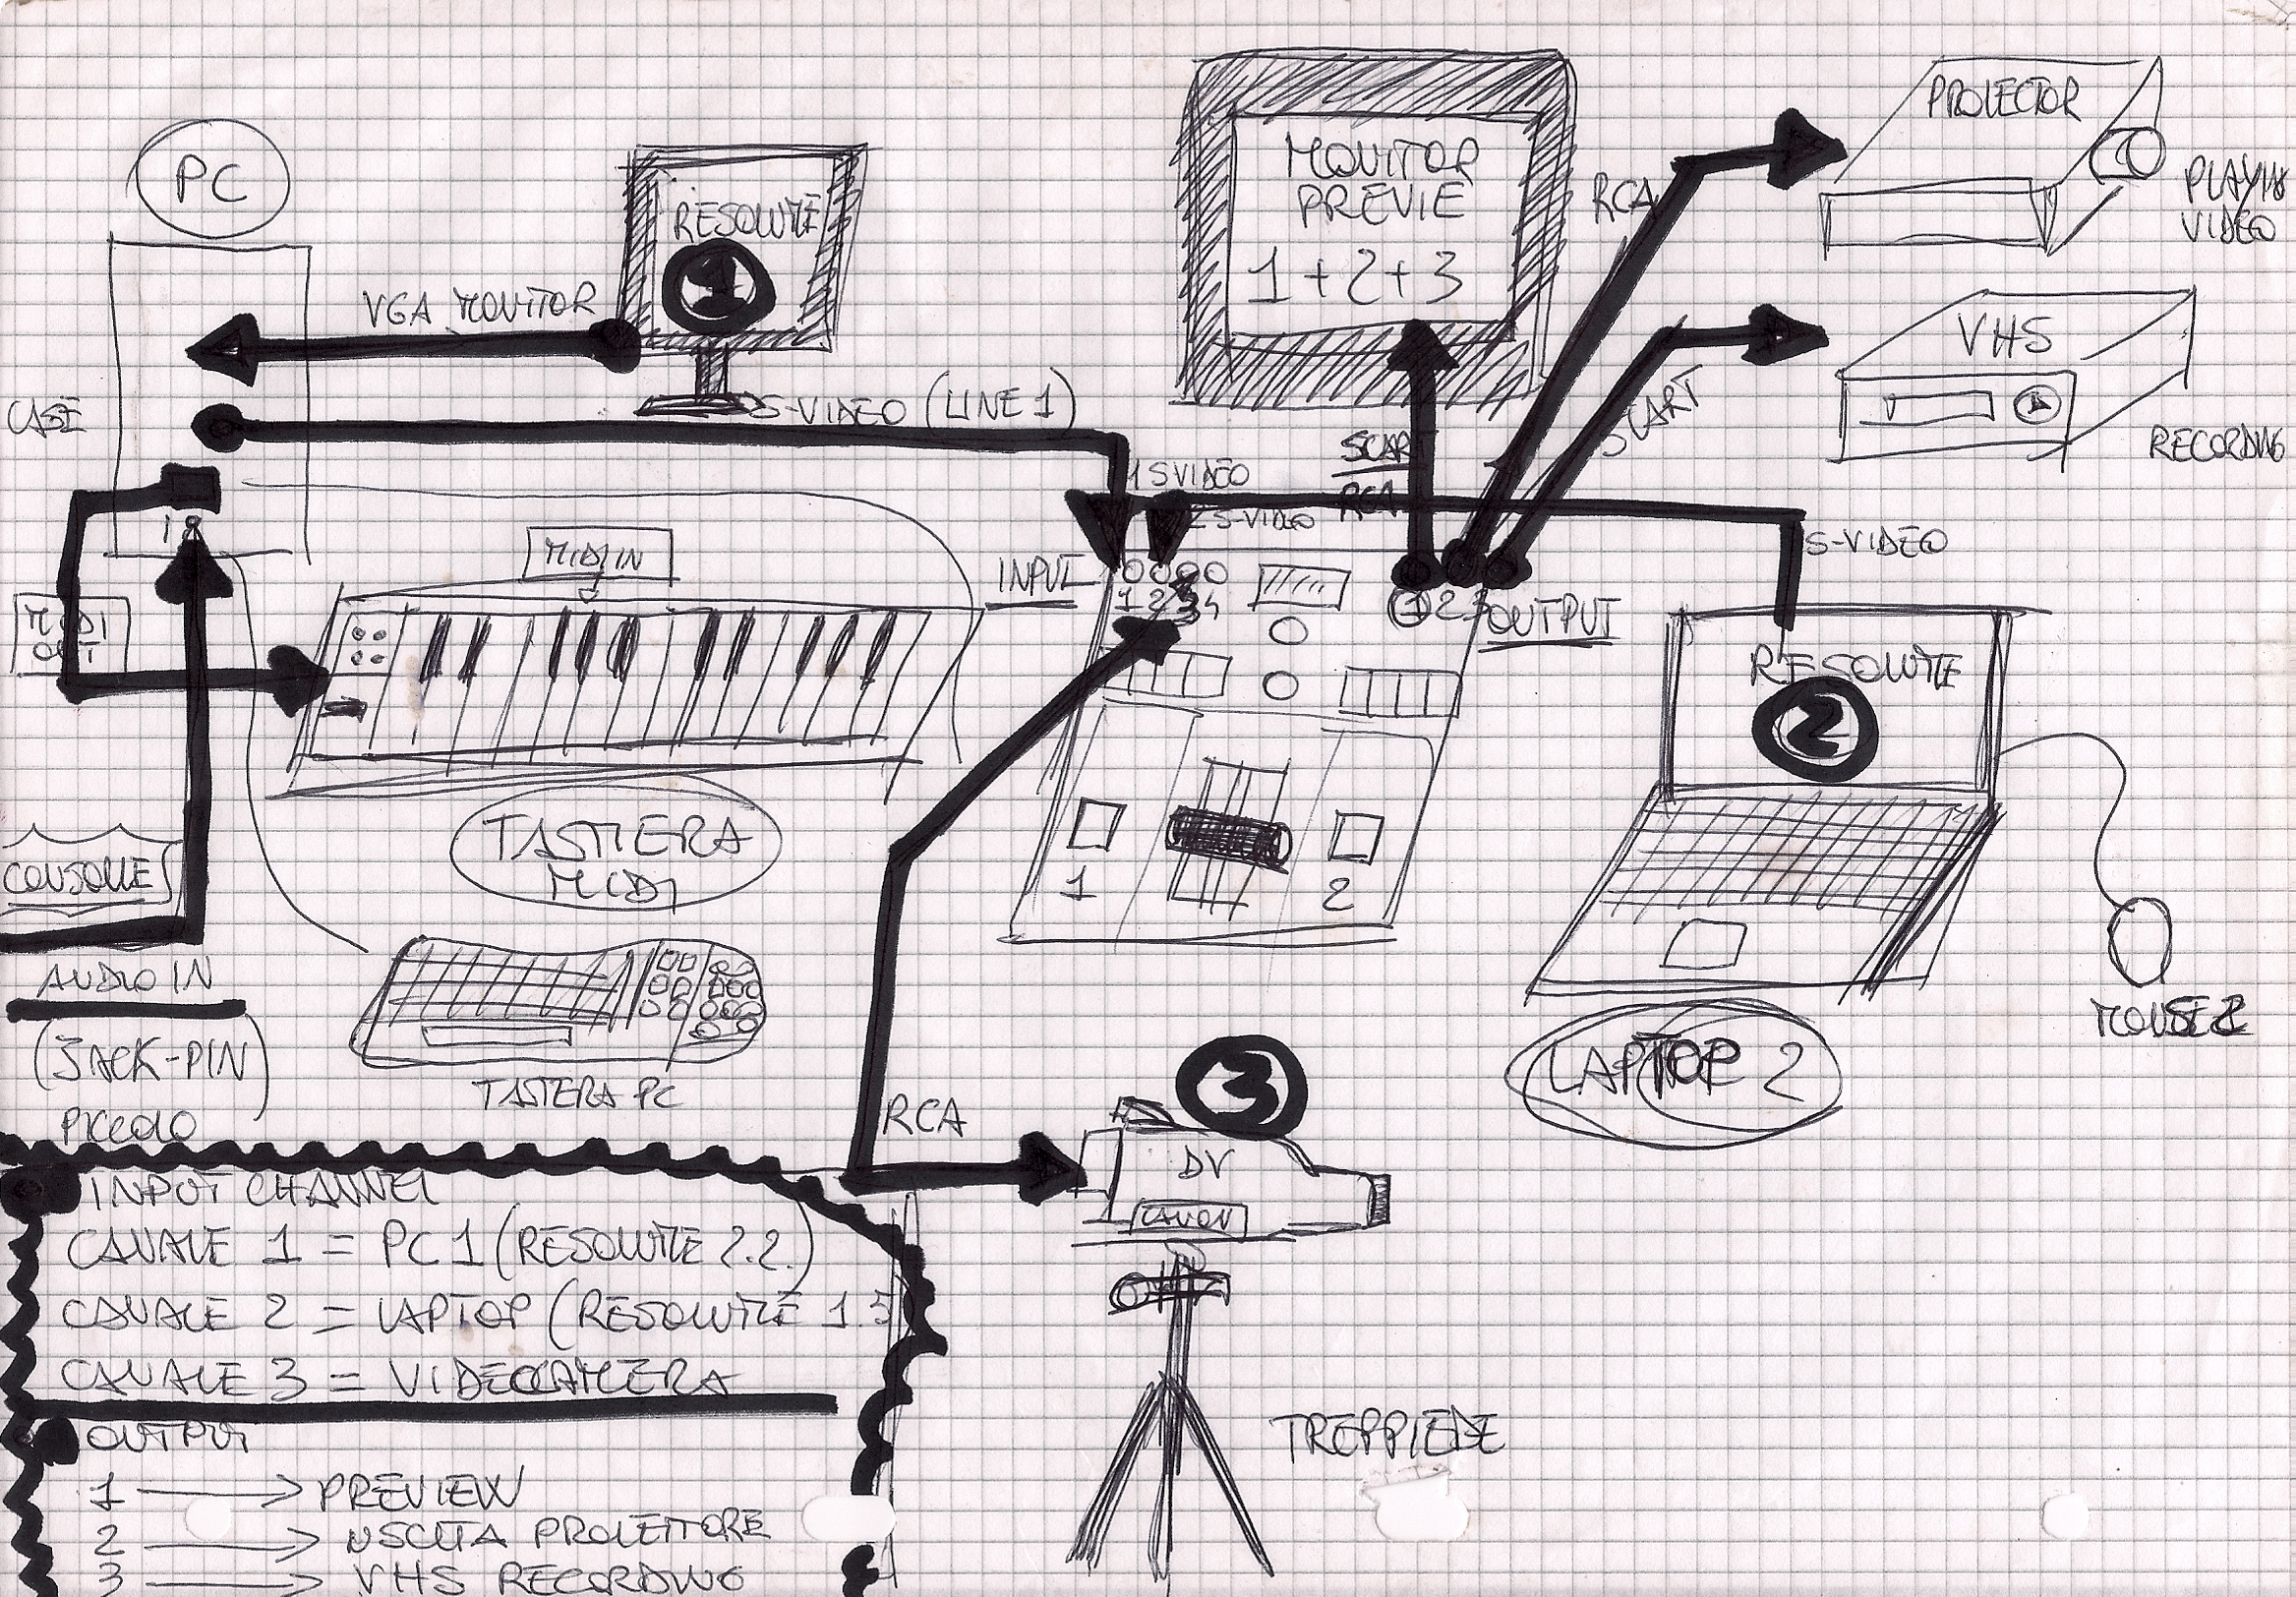 PC
RESOLUME
1
MONITOR
PREVIE
1+2+3
PROIECTOR
RCA
VGA MONITOR
VHS
SCART
CASE
S-VIDEO (LINE 1)
RECORDING
SCART
RCA
1 SVIDEO
2 S-VIDEO
S-VIDEO
MIDI IN
INPUT
1 2 3 4
1 2 3
OUTPUT
MIDI
OUT
RESOLUME
2
TASTIERA
MIDI
CONSOLLE
1
2
AUDIO IN
(JACK-PIN)
PICCOLO
MOUSE 2
LAPTOP 2
TASTIERA PC
3
RCA
DV
CANON
INPUT CHANNEL
CANALE 1 = PC1 (RESOLUME 2.2.)
CANALE 2 = LAPTOP (RESOLUME 1.5
CANALE 3 = VIDEOCAMERA
TREPPIEDE
OUTPUT
1 → PREVIEW
2 → USCITA PROIETTORE
3 → VHS RECORDING